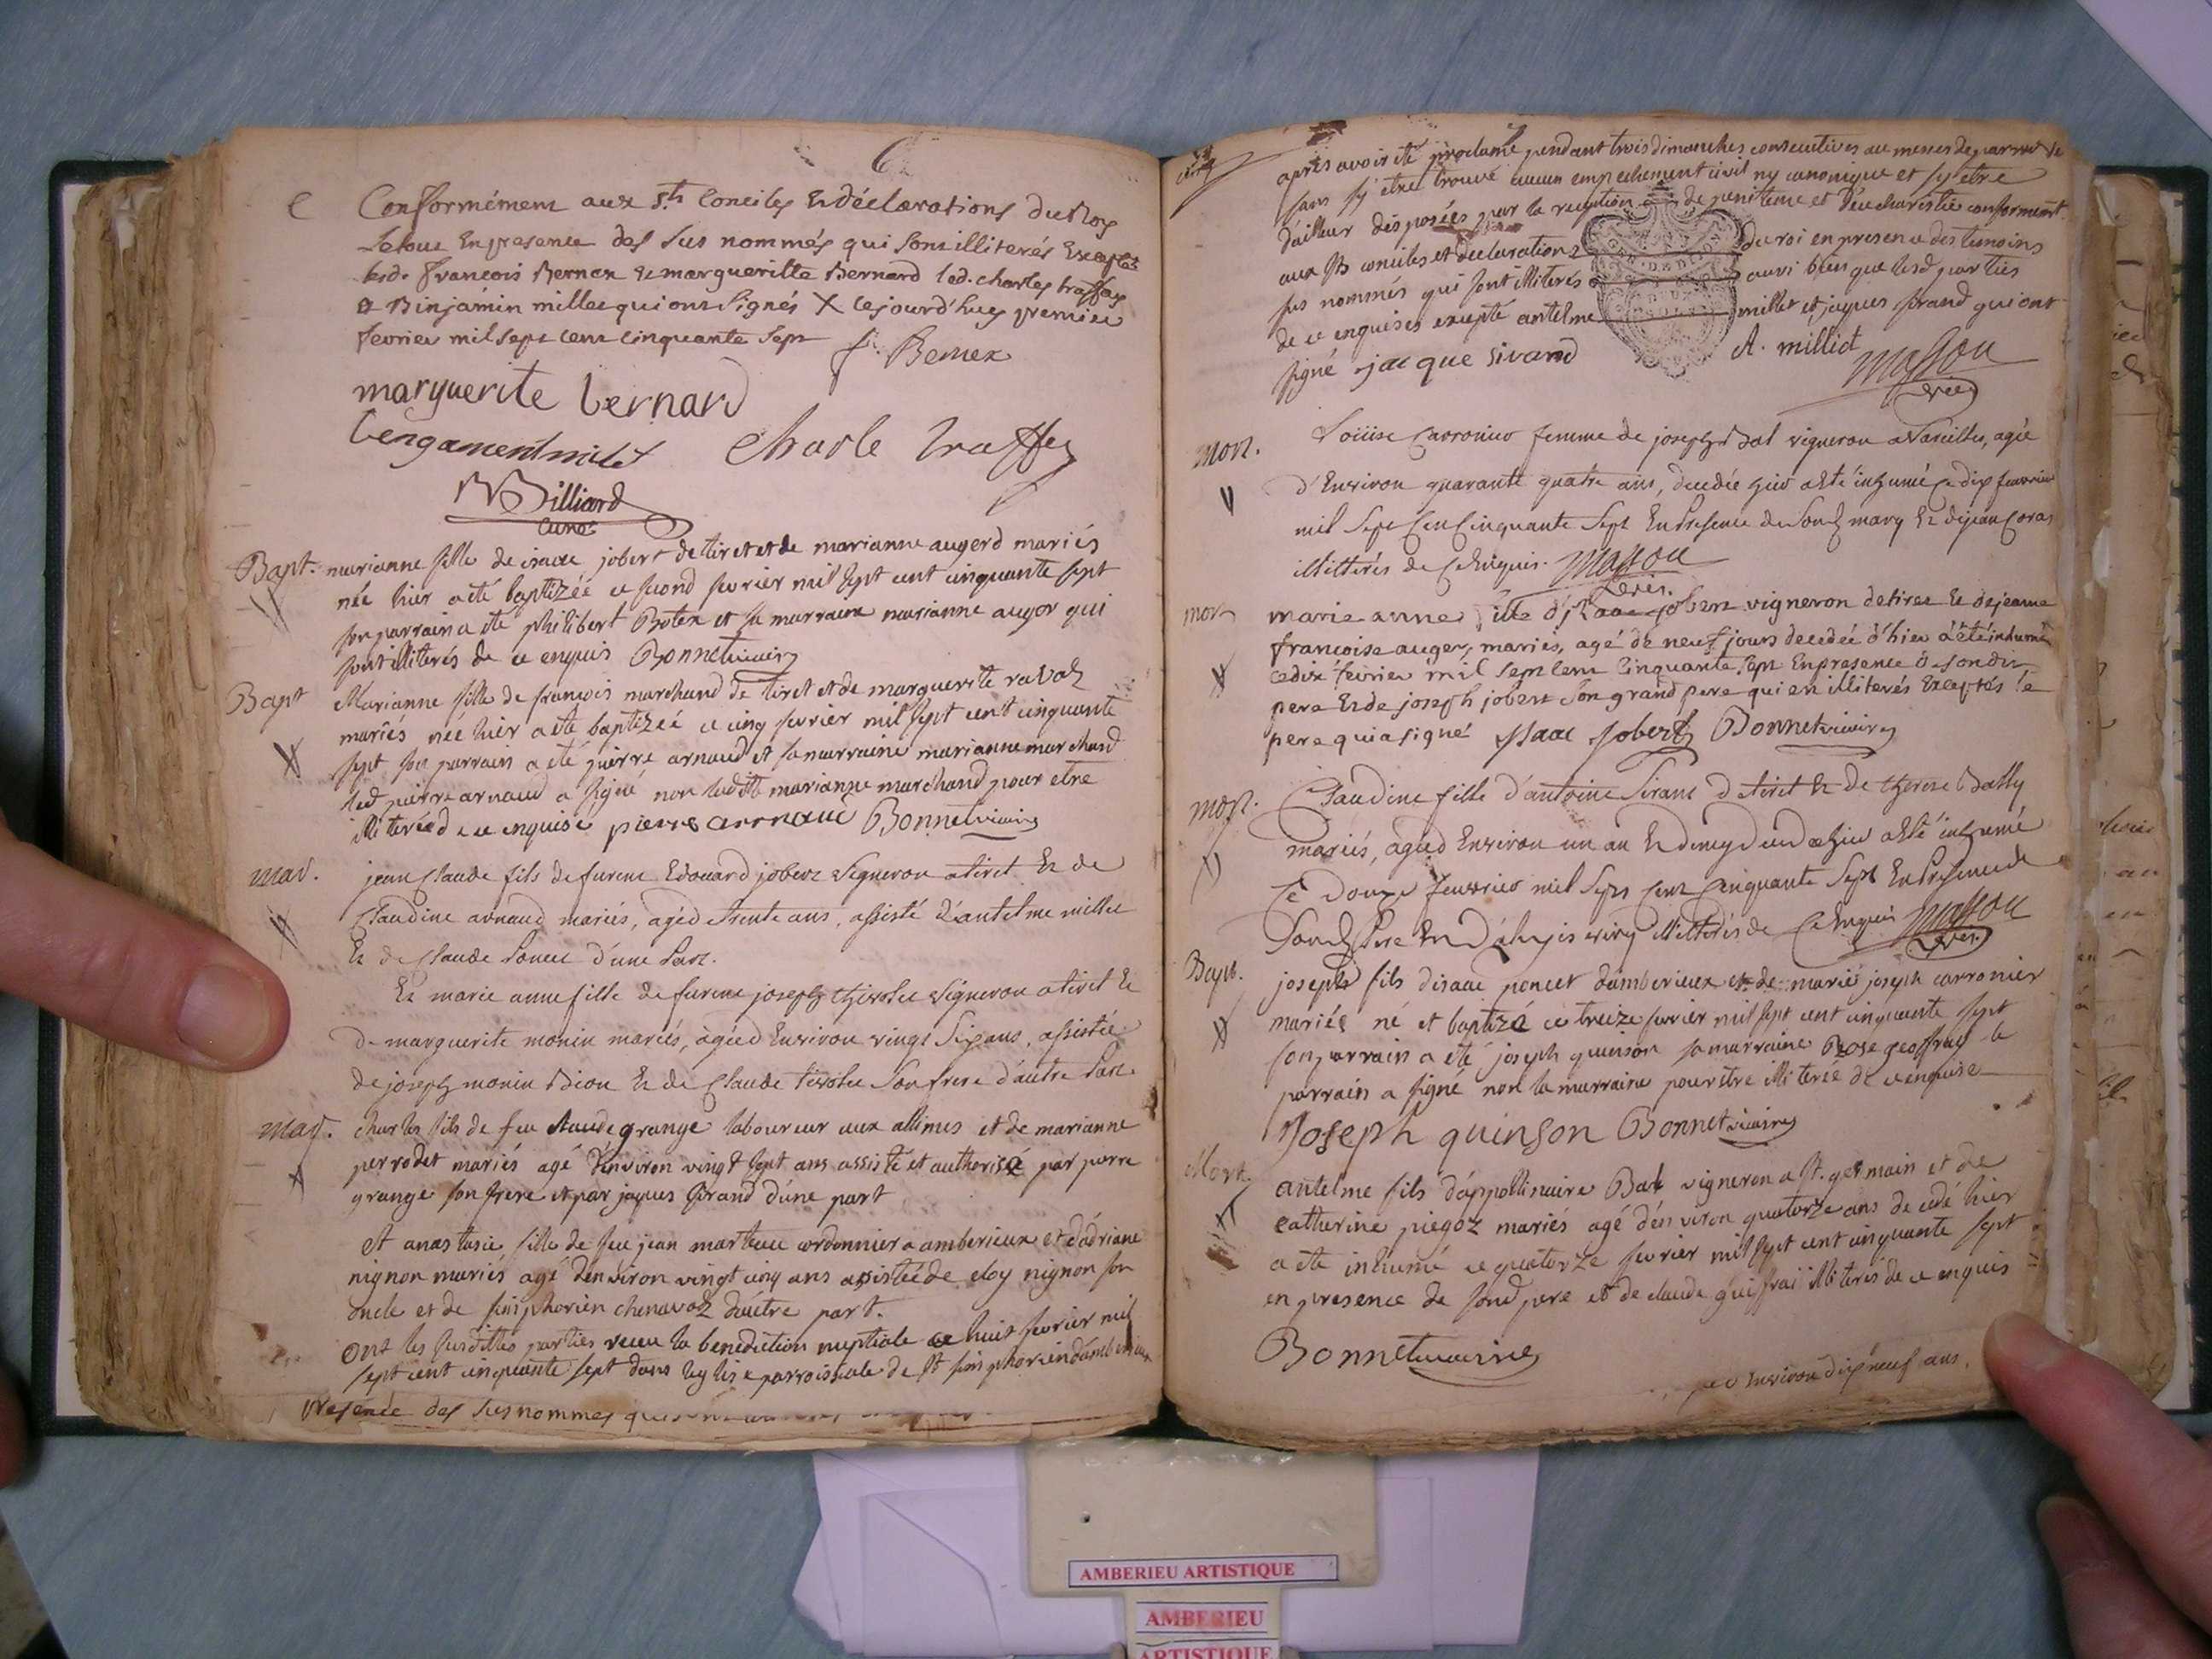 6
Conformément aux Sts Conciles et déclarations du Roy
Le tout En presence des sus nommés qui sont illiterés Exceptés
led. francois Bernex et margueritte Bernard led. charles traffey
et Binjamin millet qui ont signés X cejourd'huy premier
fevrier mil sept cent cinquante sept
f. Bernex
marguerite bernard
bengament milet charle traffey
Billiard
curé
Bapt. marianne fille de isaac jobert de tiret et de marianne augerd mariés
née hier a été baptizée ce second fevrier mil sept cent cinquante sept
son parrain a été philibert Botex et sa marraine marianne augor qui
sont illiterés de ce enquis Bonnet vicaire
Bapt Marianne fille de francois marchand de tiret et de marguerite ravat
mariés née hier a été baptizée ce cinq fevrier mil sept cent cinquante
sept son parrain a été pierre arnaud et sa marraine marianne marchand
led pierre arnaud a signé non ladite marianne marchand pour etre
illiterée de ce enquise pierre arrnaud Bonnet vicaire
mar. jean Claude fils de furent Edouard jobert vigneron a tiret Et de
Claudine arnaud mariés, agéd trente ans, assisté d'antelme millet
Et de Claude Poncet d'une Part.
Et marie anne fille de furent joseph thivolet vigneron a tiret Et
de marguerite monin mariés, agéed Environ vingt Six ans, assistée
de joseph monin Et de Claude tivolet Son frere d'autre Part.
mar. charles fils de feu claude grange laboureur aux allimes et de marianne
perrodet mariés agé d'environ vingt sept ans assisté et authorisé par pierre
grange son frere et par jaques Sirand d'une part
et anastasie fille de feu jean marteu cordonnier a amberieux et d'adriane
nignon mariés agé d'environ vingt cinq ans assistée de eloy nignon son
oncle et de simphorien chenavaz d'autre part.
ont les susdittes parties receu la benediction nuptiale ce huit fevrier mil
sept cent cinquante sept dans leglise parroissiale de St simphorien damberieux
presence des sus nommes
apres avoir été proclamé pendant trois dimanches consecutives aux messes de parroisse
sans s'y etre trouvé aucun empechement civil ny canonique et s'y etre
d'ailleur disposées par la reception de penitence et d'eucharistie conforment
aux Sts conciles et declarations du roi en presence des temoins
sus nommés qui sont illiterés aussi bien que lesd parties
de ce enquises excepté antelme millet et jaques sirand qui ont
signé jacque sivand A. milliet Masson
vic.
mort. Louise Carronier femme de joseph Bal vigneron a Vareilles, agée
d'Environ quarante quatre ans, decedée hier a Eté inhumé Ce dix feuvrier
mil Sept Cent Cinquante Sept En Presence de Sond mary Et de jean Coras
illitterés de Ce Enquis. Masson
vic.
mort marie anne fille d'jsaac jobert vigneron de tiret Et de jeanne
francoise auger, mariés, agé de neuf jours decedée d'hier a été inhumé
ce dix fevrier mil sept cent cinquante sept En presence de son dit
pere Et de joseph jobert son grand pere qui en illiterés Exceptés le
pere qui a signé jsaac jobert Bonnet vicaire
mort. Claudine fille d'antoine Sirand de tiret Et de therese Bally
mariés, agéed Environ un an Et demy decedée hier a Eté inhumé
Ce Douze feuvrier mil Sept Cent Cinquante Sept En Presence de
Sond Pere Et illitterés de Ce Enquis Masson
vic.
Bapt. joseph fils d'isaac poncet damberieux et de marie joseph carronier
mariés né et baptizé ce treize fevrier mil sept cent cinquante sept
son parrain a été joseph quinson sa marraine Rose geoffray le
parrain a signé non la marraine pour etre illiterée de ce enquise
Joseph quinson Bonnet vicaire
Mort. antelme fils d'appollinaire Bal vigneron a st. germain et de
catherine piegoz mariés agé d'environ quatorze ans decedé hier
a été inhumé ce quatorze fevrier mil sept cent cinquante sept
en presence de sond pere et de claude illiterés de ce enquis
Bonnet vicaire
Environ dix neuf ans.
AMBERIEU ARTISTIQUE
AMBERIEU
ARTISTIQUE